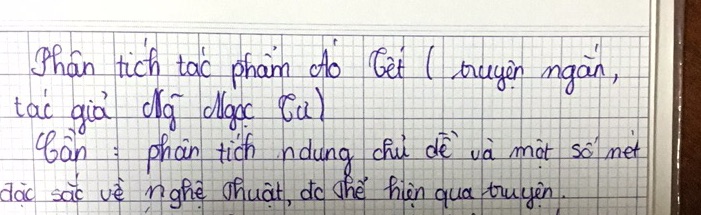 Phân tích tác phẩm đò Tết ( truyện ngắn,
tác giả Ng~ Ngọc Tư)
Cần : phân tích ndung chủ đề và một số nét
đặc sắc về nghệ thuật, đc thể hiện qua truyện.